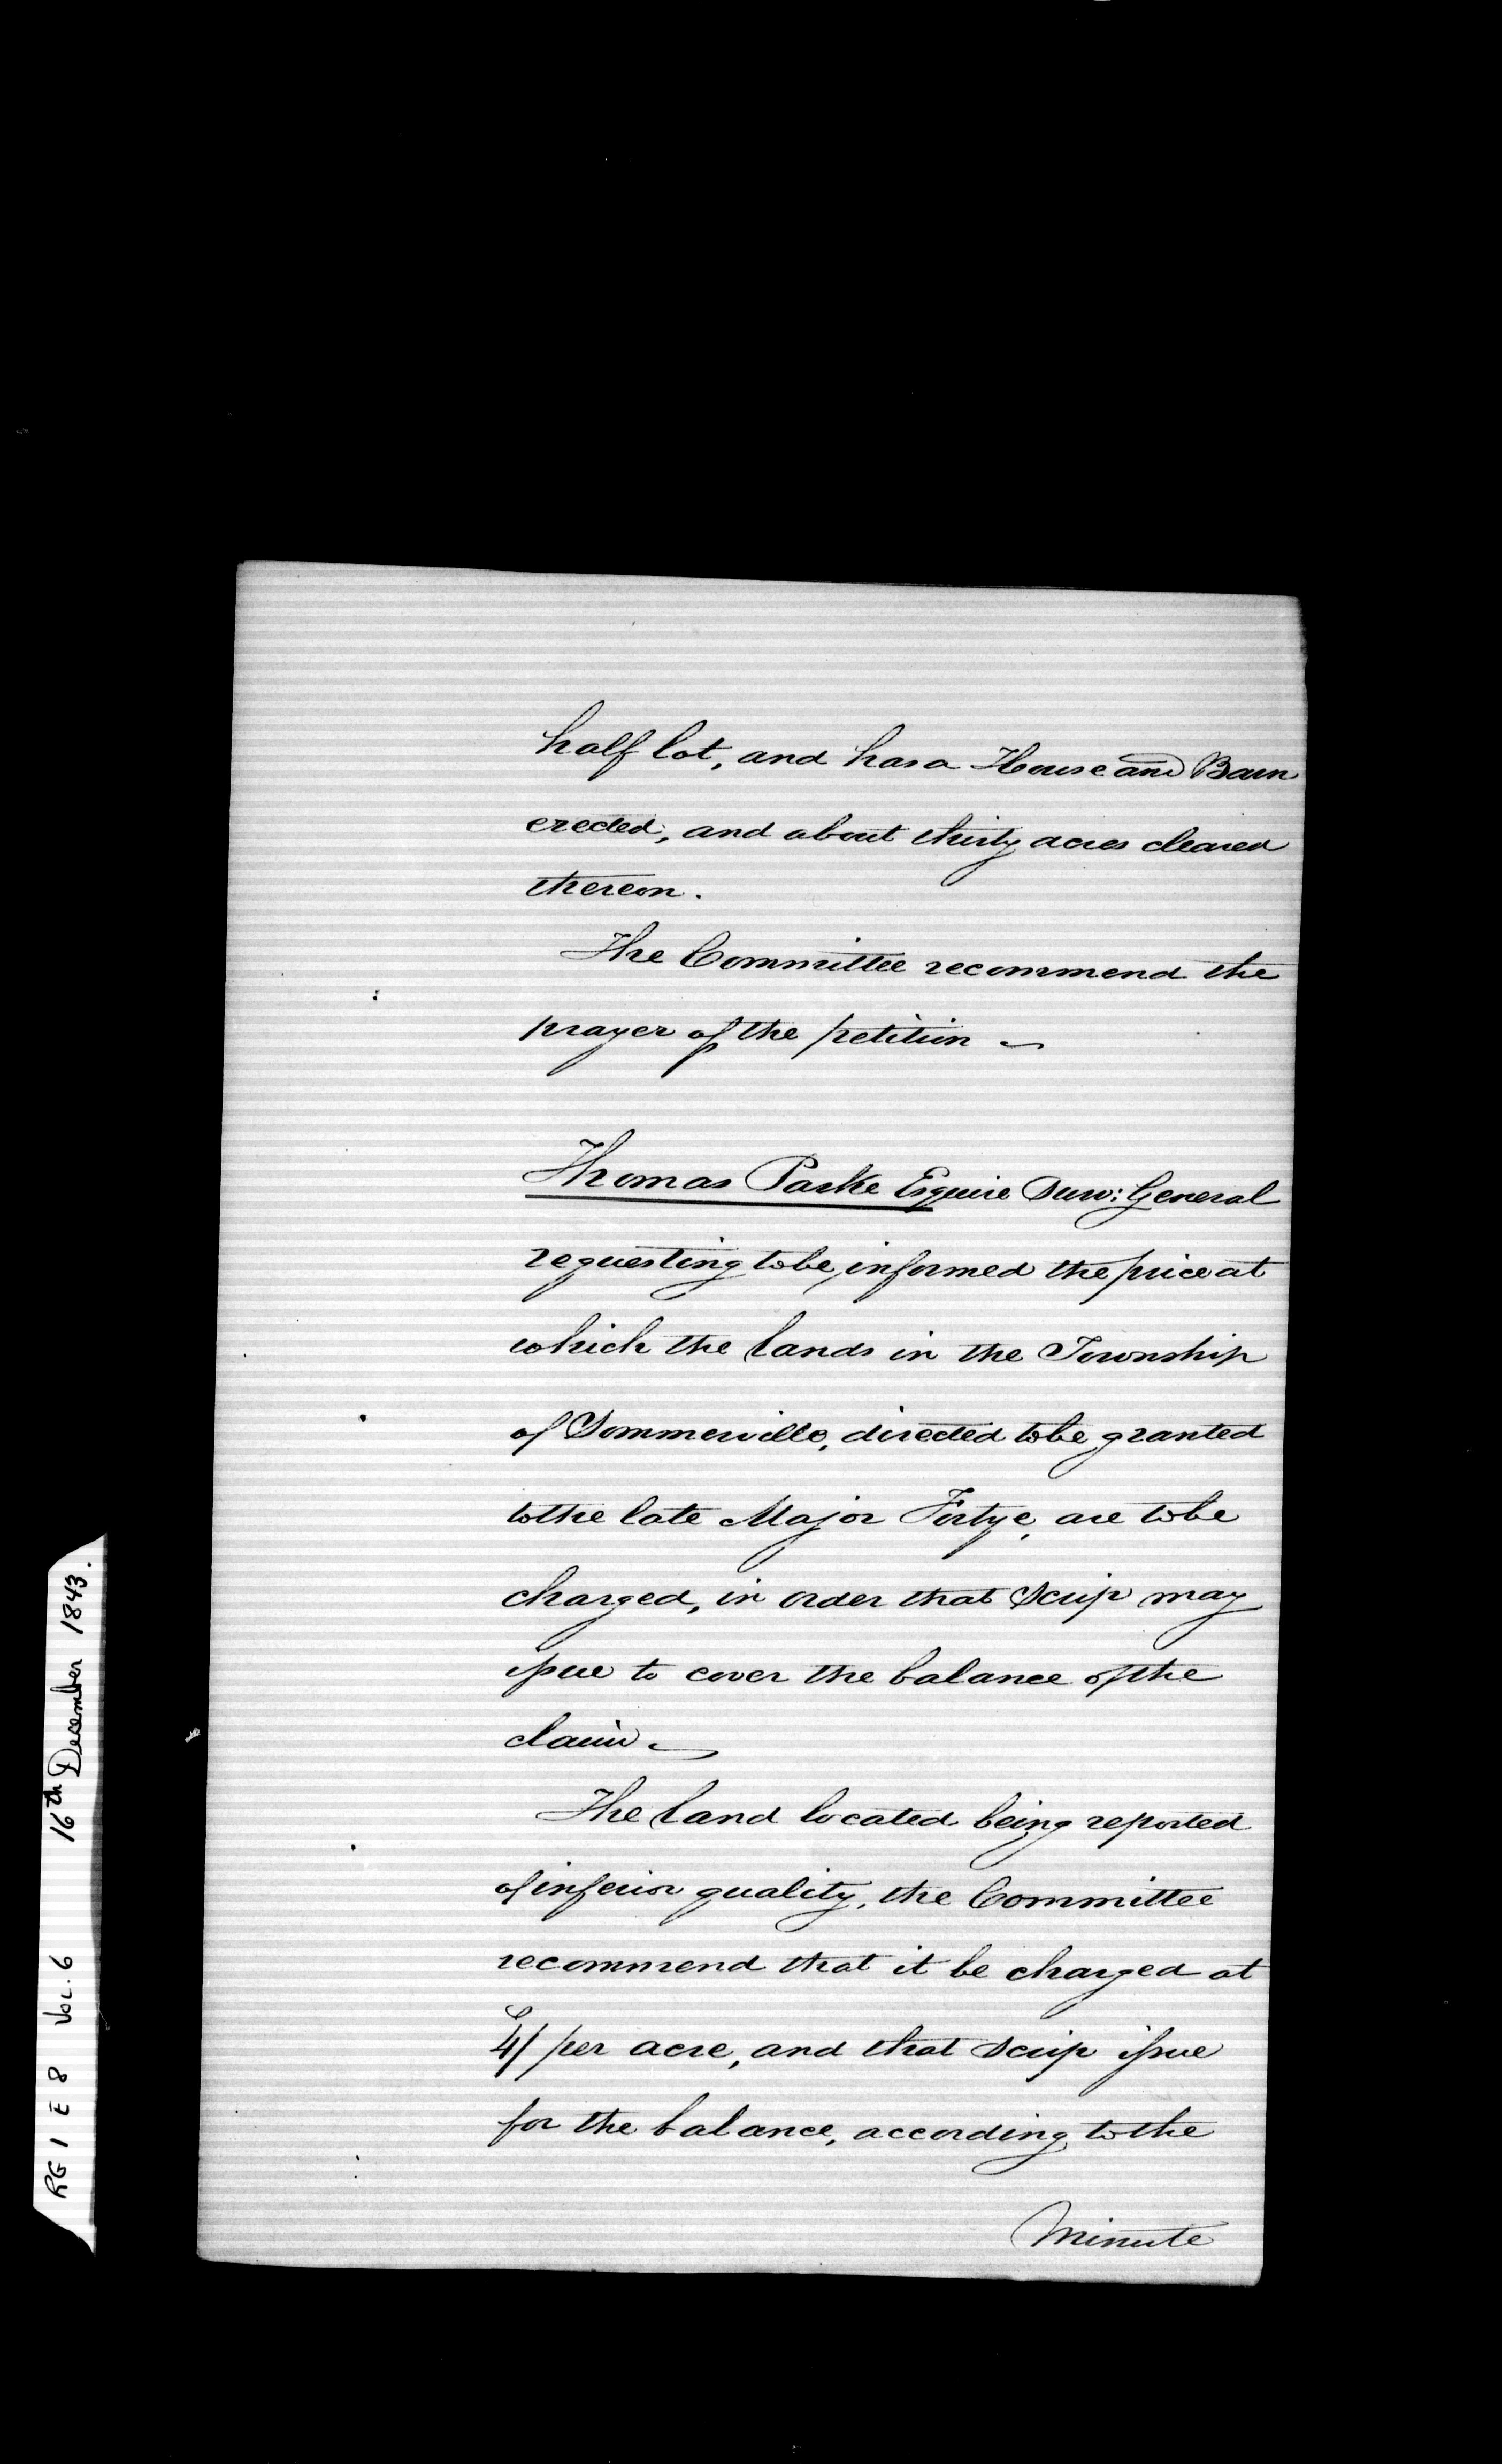 half lot, and has a House and Barn
erected, and about thirty acres cleared
thereon.
The Committee recommend the
prayer of the petition —
Thomas Parke Esquire Surv: General
requesting to be informed the price at
which the lands in the Township
of Sommerville, directed to be granted
to the late Major Fortye, are to be
charged, in order that Scrip may
issue to cover the balance of the
claim —
The land located being reported
of inferior quality, the Committee
recommend that it be charged at
4/ per acre, and that Scrip issue
for the balance, according to the
Minute
RG 1 E 8 Vol. 6 16th December 1843.